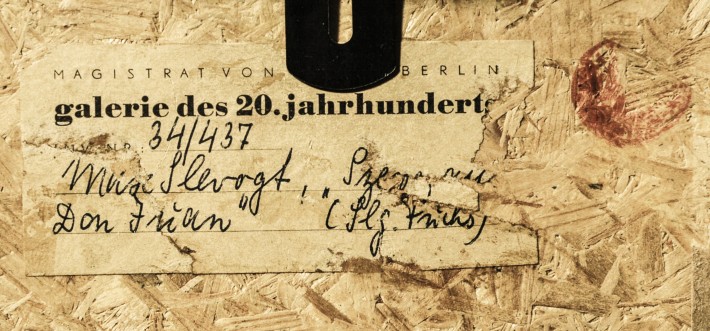 MAGISTRAT VON BERLIN
galerie des 20. jahrhunderts
INV. NR. 34/437
Max Slevogt, „Szene, aus
Don Juan" (Slg. Fuchs)